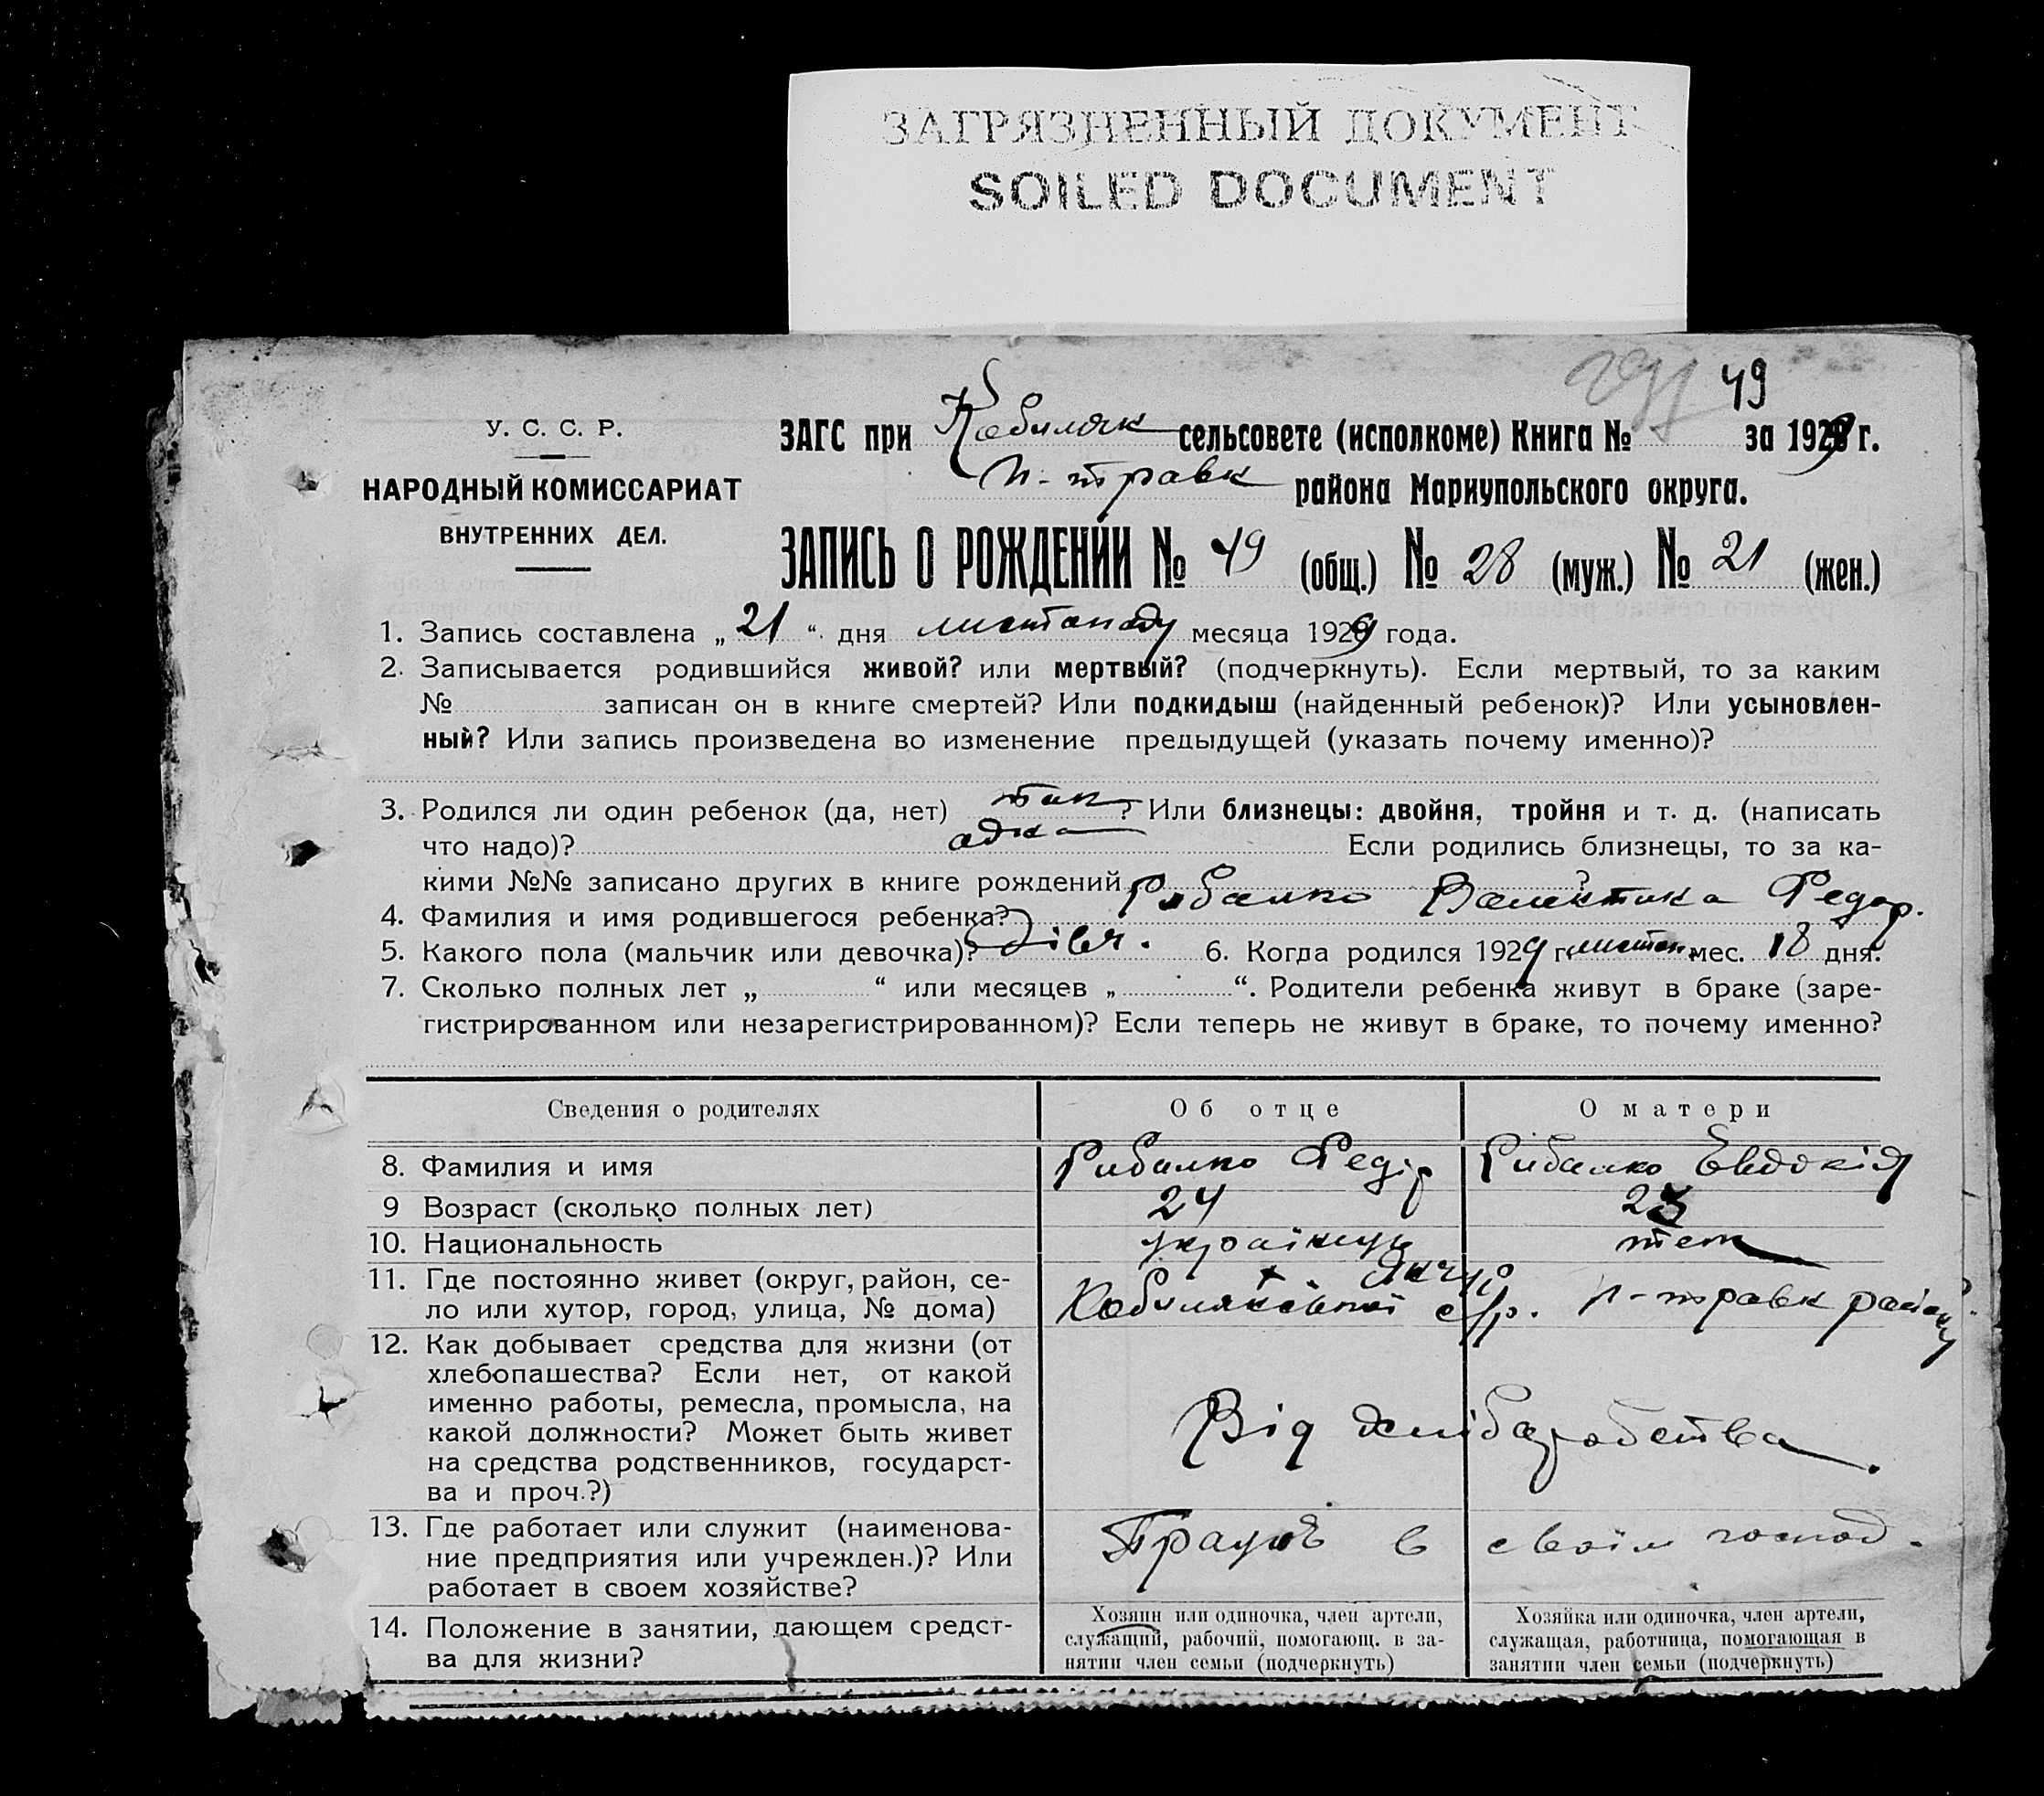 ЗАГРЯЗНЕННЫЙ ДОКУМЕНТ
SOILED DOCUMENT
49
У. С. С. Р.
НАРОДНЫЙ КОМИССАРИАТ
ВНУТРЕННИХ ДЕЛ.
ЗАГС при Кобиляк сельсовете (исполкоме) Книга № за 1929 г.
п-травк района Мариупольского округа.
ЗАПИСЬ О РОЖДЕНИИ № 49 (общ.) № 28 (муж.) № 21 (жен.)
1. Запись составлена „21“ дня листопаду месяца 1929 года.
2. Записывается родившийся живой? или мертвый? (подчеркнуть). Если мертвый, то за каким
№ записан он в книге смертей? Или подкидыш (найденный ребенок)? Или усыновлен-
ный? Или запись произведена во изменение предыдущей (указать почему именно)?
3. Родился ли один ребенок (да, нет) так ? Или близнецы: двойня, тройня и т. д. (написать
что надо)? одна Если родились близнецы, то за ка-
кими №№ записано других в книге рождений ?
4. Фамилия и имя родившегося ребенка? Рибалко Валентина Федор.
5. Какого пола (мальчик или девочка)? Дівч. 6. Когда родился 1929 г. листоп. мес. 18 дня.
7. Сколько полных лет „ “ или месяцев „ “. Родители ребенка живут в браке (заре-
гистрированном или незарегистрированном)? Если теперь не живут в браке, то почему именно?
Сведения о родителях Об отце О матери
8. Фамилия и имя Рибалко Федір Рибалко Евдокія
9 Возраст (сколько полных лет) 24 23
10. Национальность українци теж
11. Где постоянно живет (округ, район, се-
ло или хутор, город, улица, № дома) Кобиляківськ с/р. п-травк району
12. Как добывает средства для жизни (от
хлебопашества? Если нет, от какой
именно работы, ремесла, промысла, на
какой должности? Может быть живет
на средства родственников, государст-
ва и проч.?)
Від хлібаробства.
13. Где работает или служит (наименова-
ние предприятия или учрежден.)? Или
работает в своем хозяйстве?
Працює в своїм господ.
14. Положение в занятии, дающем средст-
ва для жизни?
Хозяин или одиночка, член артели,
служащий, рабочий, помогающ. в за-
нятии член семьи (подчеркнуть)
Хозяйка или одиночка, член артели,
служащая, работница, помогающая в
занятии член семьи (подчеркнуть)